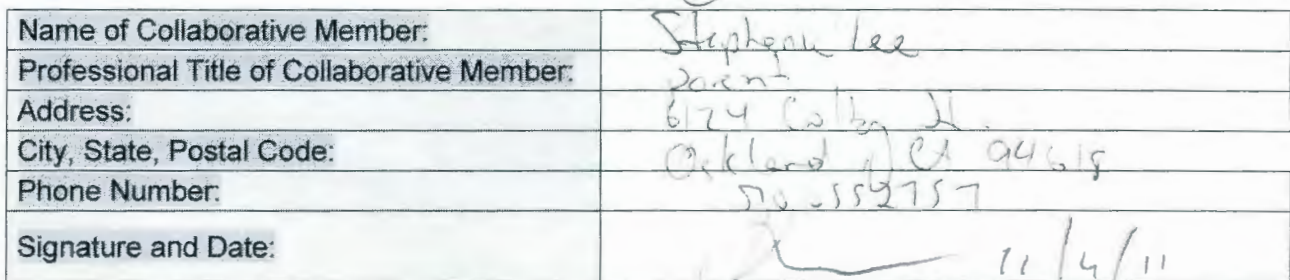 Name of Collaborative Member: Stephanie Lee
Professional Title of Collaborative Member: Parent
Address: 6124 Colby St.
City, State, Postal Code: Oakland, CA 94618
Phone Number:
Signature and Date: 11/4/11